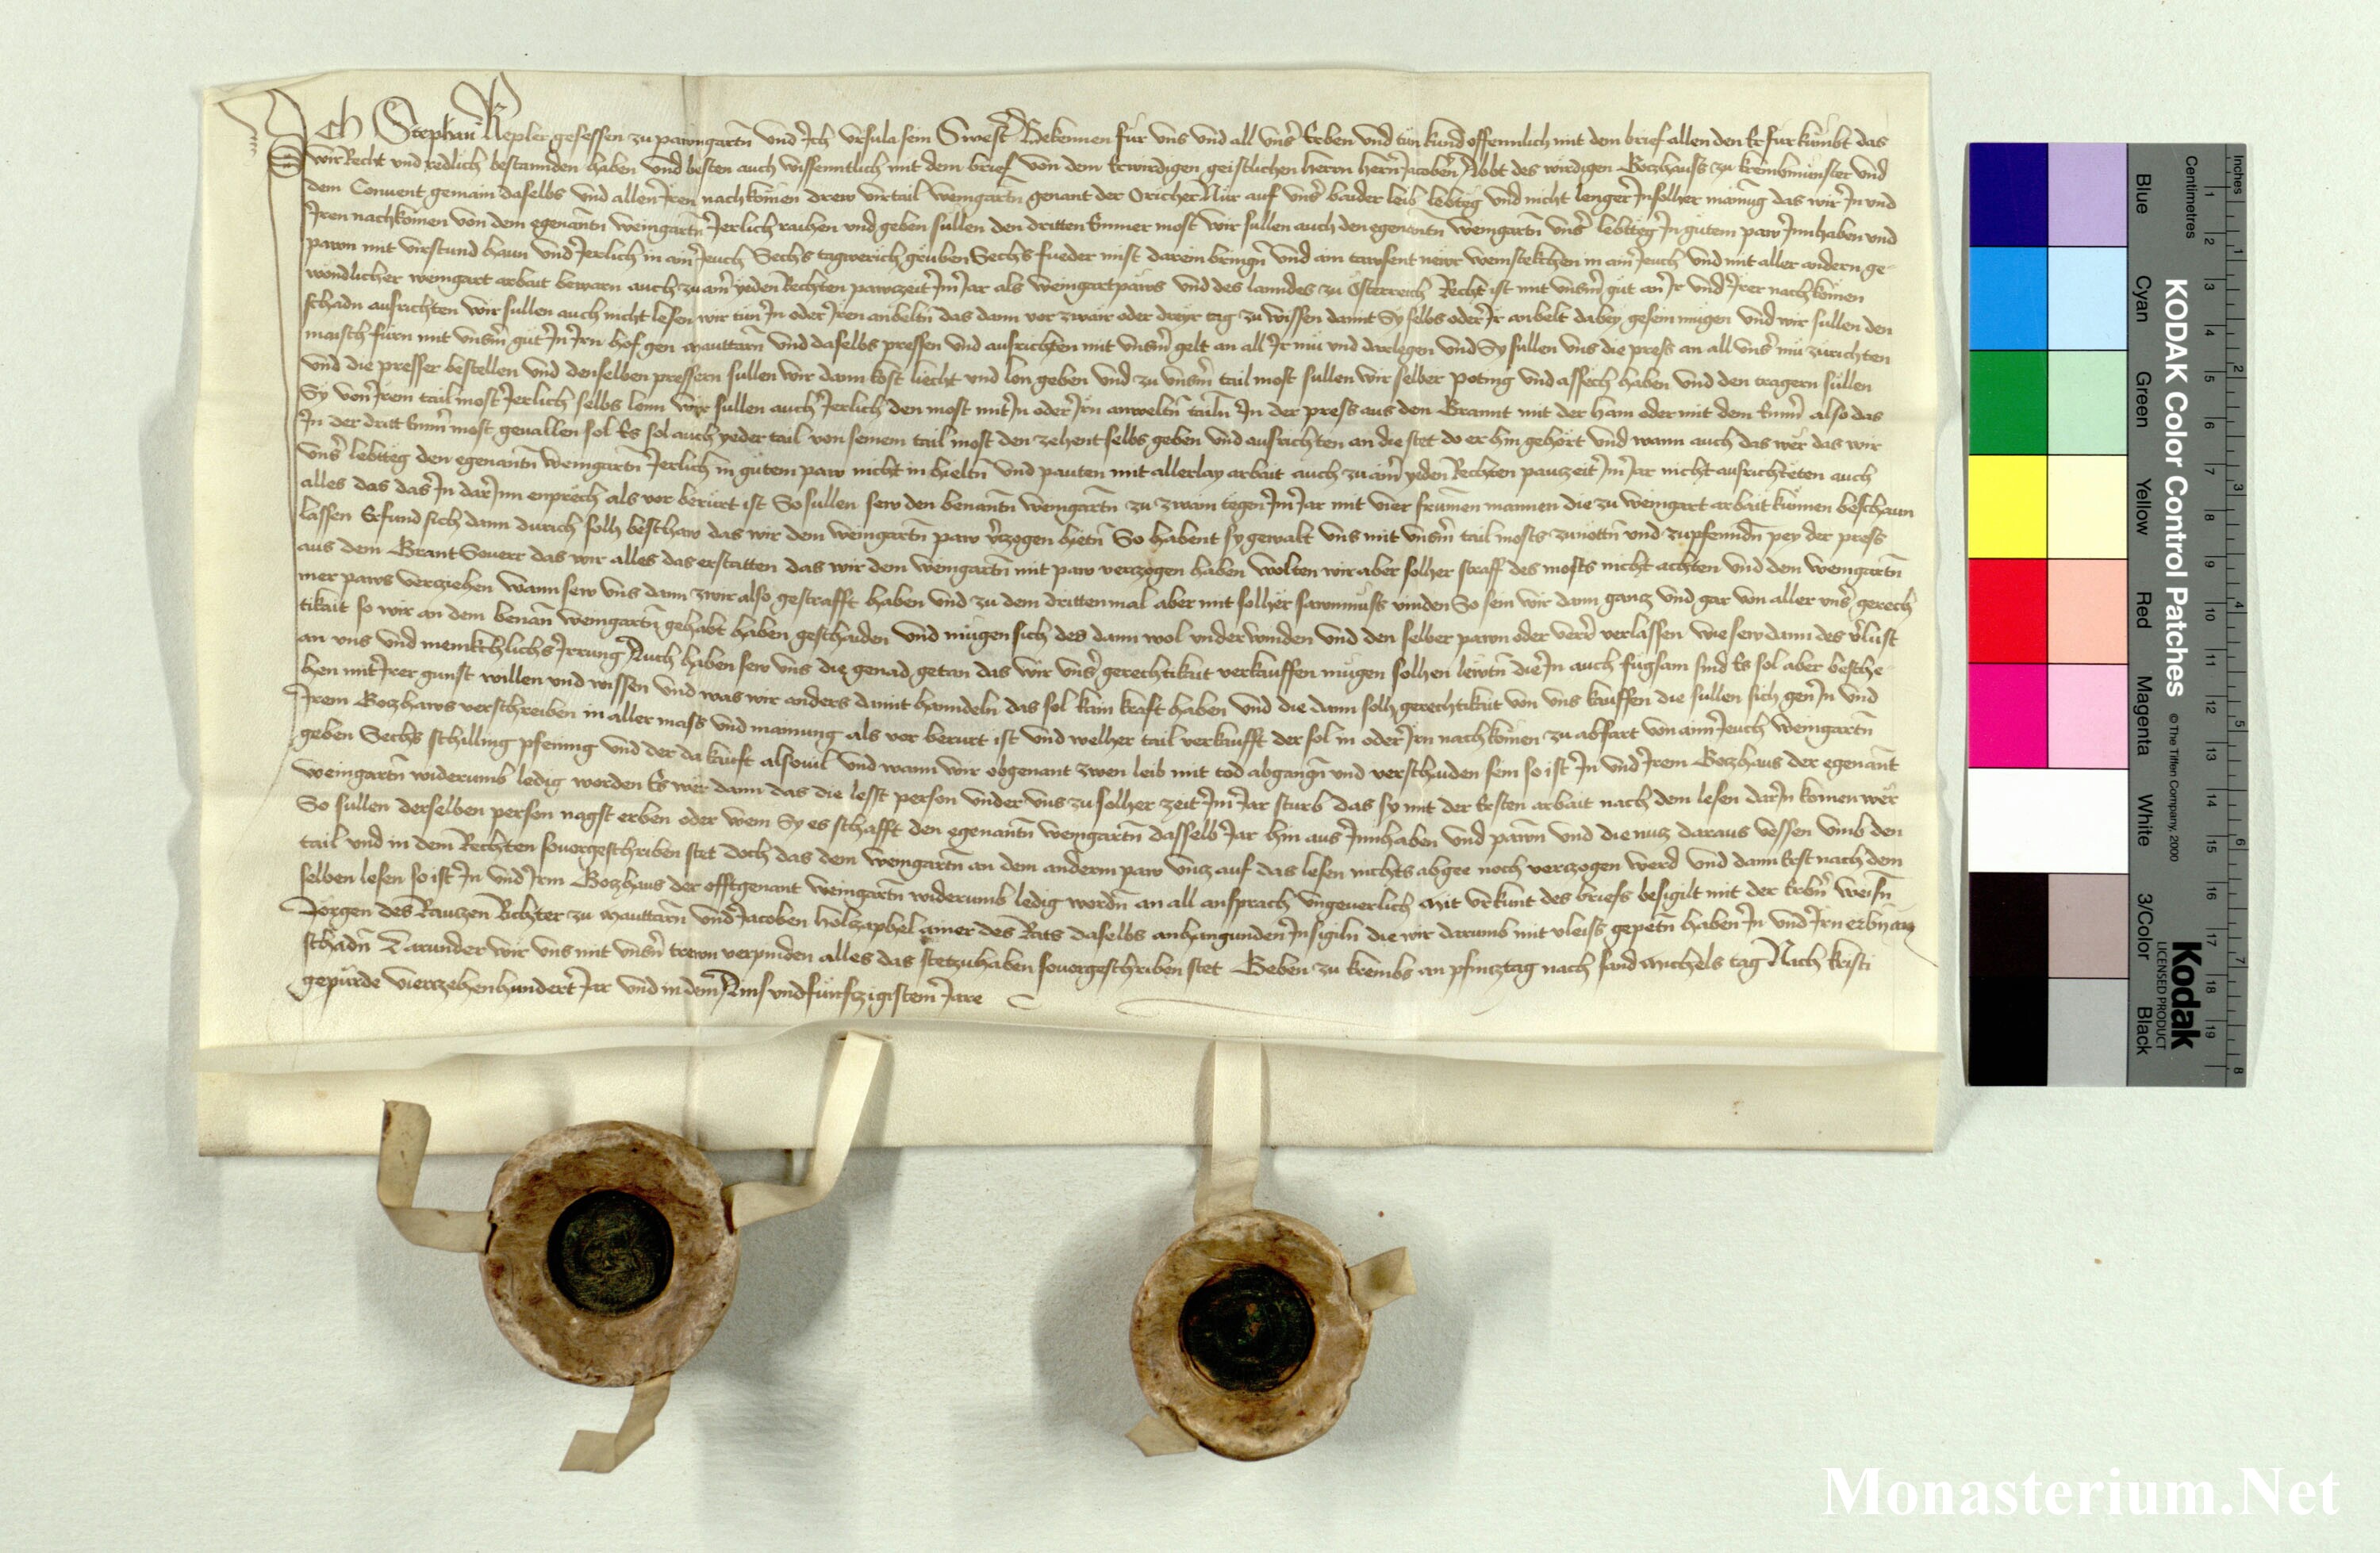 Ich Stephan Kepler gesessen zu pawngartn und Ich Ursula sein Swest Bekennen für uns und all uns Erben und tün kund offennlich mit dem brief allen den Er fur kumbt das
wir Recht und redlich bestannden haben und besten auch wissenntlich mit dem brief von dem Erwirdigen geistlichen herrn hern Jacoben Abbt des wirdigen Gotzhauss zu krembmünster und
dem Convent gemain daselbs und allen Iren nachkomen drew virtail weingartn genant der Oricher Nür auf uns baider leib lebtëg und nicht lenger In solher mainug das wir In und
Iren nachkomen von dem egenantn weingartn Jerlich raihen und geben sullen den dritten Emmer most wir sullen auch den egenantn weingartn uns lebtteg In gutem paw Innhaben und
pawn mit virstund haun und Jerlich in aim Jeuch Sechs tagwerich grüben Sechs fueder mist darein bringn und ain tawsent newr weinstekchen in aim Jeuch und mit aller andern ge-
wondlicher weingart arbait bewarn auch zu aim yeden Rechten pawczeit Im Jar als weingartpaws und des lanndes zu Osterreich Recht ist mit unsm güt an Ir und Irer nachkomen
schadn ausrichten wir sullen auch nicht lesen wir tun In oder Iren anbeltn das dann vor zwair oder dreyr tag zu wissen damit Sy selbs oder Ir anbelt dabey gesein mügen und wir sullen den
maisch fürn mit unsm güt In Irn hof gen Mauttarn und daselbs pressen und ausrichten mit unsm gelt an all Ir mü und darlegen und Sy sullen uns die press an all uns mü zürichten
und die presser bestellen und denselben pressern sullen wir dann kost liecht und lon geben und zu unsm tail most sullen wir selber poting und assech haben und den tragern sullen
Sy von Irem tail most Jerlich selbs lonn wir sullen auch Jerlich den most mit In oder Irn anweltn tailn In der press aus den Grannt mit der ham oder mit dem Emm also das
In der dritt Emm most gevallen sol Es sol auch yeder tail von seinem tail most den zehent selbs geben und ausrichten an die stet do er hin gehort und wann auch das wer das wir
uns lebtteg den egenantn weingartn Jerlich in gutem paw nicht in hieltn und pauten mit allerlay arbait auch zu aim yeden Rechten pauczeit Im Jar nicht ausrichteten auch
alles das das In darInn enprech als vor berürt ist So sullen sew den benantn weingartn zu zwain tegen Im Jar mit vier frümen mannen die zu weingart arbait künnen beschaun
lassen Erfund sich dann durich solh beschaw das wir dem weingartn paw vrzogen hietn So habent sy gewalt uns mit unsm tail mosts zunöttn und zupfenndn pey der press
aus dem Grant Souerr das wir alles das erstatten das wir dem weingartn mit paw verczogen haben wolten wir aber solher straff des mosts nicht achten und dem weingartn
mer paws verziehen wann sew uns dann zwir also gestrafft haben und zu dem dritten mal aber mit solher sawmnuss vinden So sein wir dann gancz und gar von aller uns gerech
tikait so wir an dem benan weingartn gehabt haben geschaiden und mügen sich des dann wol underwinden und den selber pawn oder verrer verlassen wie sew dann des vrlust
an uns und menikchlichs Irrung Auch haben sew uns die genad getan das wir uns gerechtikait verkauffen mügen solhen lewtn die In auch fugsam sind Es sol aber besche-
hen mit Irer gunst willen und wissen und was wir anders damit hanndeln das sol kain kraft haben und die dann solh gerechtikait von uns kauffen die sullen sich gen In und
Irem Gotzhaws verschreiben in aller mass und mainung als vor berurt ist und welher tail verkaufft der sol in oder Irn nachkomen zu abfart von aim Jeuch weingartn
geben Sechs schilling pfening und der da kauft alsouil und wann wir obgenant zwen leib mit tod abgangn und verschaiden sein so ist In und Irem Gotzhaus der egenant
weingartn widerumb ledig worden Es wer dann das die lesst person under uns zu solher zeit Im Jar sturb das sy mit der Ersten arbait nach dem lesen darIn komen wer
So sullen derselben person nagst erben oder wem Sy es schafft den egenantn weingartn dasselb Jar hin aus Innhaben und pawn und die nucz daraus vessen umb den
tail und in dem Rechten souorgeschriben stet doch das dem weingartn an dem anderm paw uncz auf das lesen nichts abgee noch verczogen werd und dann Erst nach dem
selben lesen so ist In und Irm Gotzhaus der offtgenant weingartn widerumb ledig wordn an all ansprach ungeuerlich Mit urkunt des briefs besigilt mit der Erbn weisn
Jorgen des Rauczen Richter zu Mauttarn und Jacoben holczaphel ainer des Rats daselbs anhangunden Insigiln die wir darumb mit vleiss gepetn haben In und Irn erbn an
schadn Darunder wir uns mit unsn trewn verpinden alles das stetzuhaben souorgeschriben stet Geben zu krembs an pfincztag nach sand Michels tag Nach kristi
gepürde vierczehenhundert Jar und in dem Ains und fünfczigistem Jare
KODAK Color Control Patches © The Tiffen Company, 2000
Kodak
LICENSED PRODUCT
Inches 1 2 3 4 5 6 7 8
Centimetres 1 2 3 4 5 6 7 8 9 10 11 12 13 14 15 16 17 18 19
Blue Cyan Green Yellow Red Magenta White 3/Color Black
Monasterium.Net